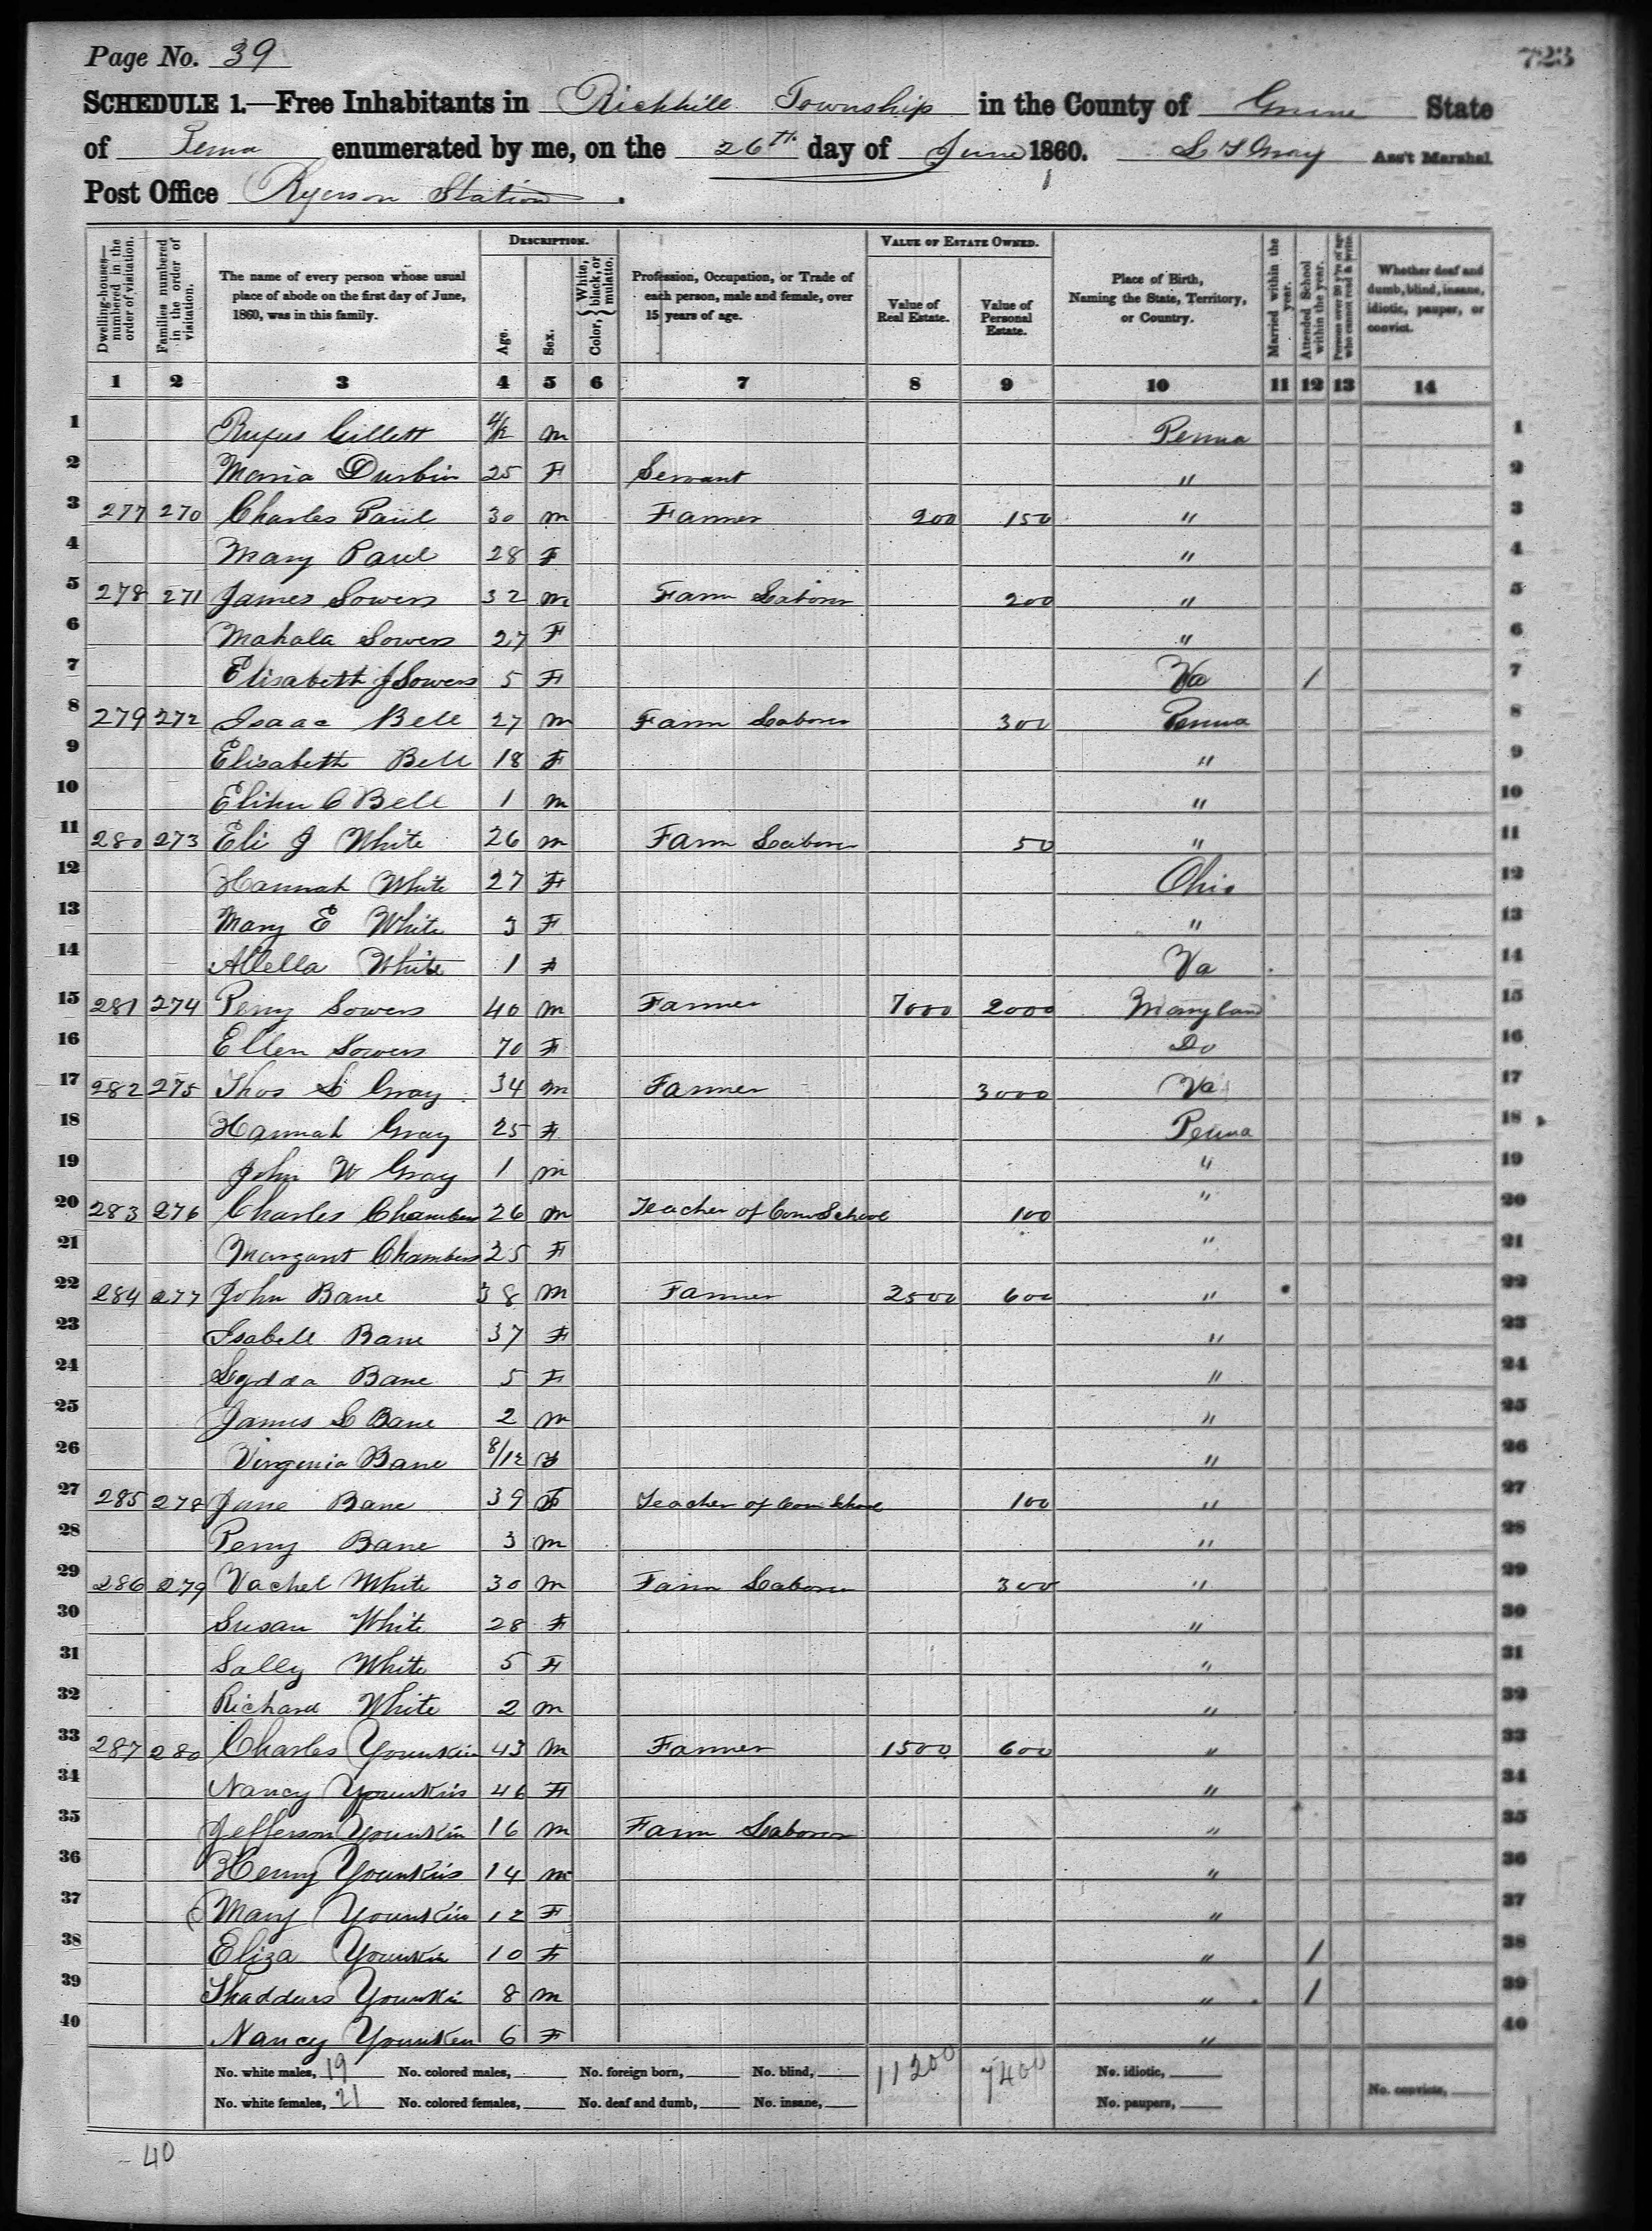 Page No. 39
723
SCHEDULE 1.—Free Inhabitants in Richhill Township in the County of Greene State
of Penna enumerated by me, on the 26th day of June 1860. L S Gray Ass't Marshal
Post Office Ryerson Station.
Dwelling-houses—numbered in the order of visitation.
Families numbered in the order of visitation.
The name of every person whose usual place of abode on the first day of June, 1860, was in this family.
DESCRIPTION.
Age.
Sex.
Color, { White, black, or mulatto.
Profession, Occupation, or Trade of each person, male and female, over 15 years of age.
VALUE OF ESTATE OWNED.
Value of Real Estate.
Value of Personal Estate.
Place of Birth, Naming the State, Territory, or Country.
Married within the year.
Attended School within the year.
Persons over 20 y'rs of age who cannot read & write.
Whether deaf and dumb, blind, insane, idiotic, pauper, or convict.
1 2 3 4 5 6 7 8 9 10 11 12 13 14
1 Rufus Gillett 4/12 m Penna 1
2 Maria Durbin 25 F Servant " 2
3 277 270 Charles Paul 30 m Farmer 200 150 " 3
4 Mary Paul 28 F " 4
5 278 271 James Sowers 32 m Farm Laborer 200 " 5
6 Mahala Sowers 27 F " 6
7 Elisabeth J Sowers 5 F Va / 7
8 279 272 Isaac Bell 27 m Farm Laborer 300 Penna 8
9 Elisabeth Bell 18 F " 9
10 Elihu C Bell 1 m " 10
11 280 273 Eli J White 26 m Farm Laborer 50 " 11
12 Hannah White 27 F Ohio 12
13 Mary E White 3 F " 13
14 Allella White 1 F Va 14
15 281 274 Perry Sowers 40 m Farmer 7000 2000 Maryland 15
16 Ellen Sowers 70 F Do 16
17 282 275 Thos L Gray 34 m Farmer 3000 Va 17
18 Hannah Gray 25 F Penna 18
19 John W Gray 1 m " 19
20 283 276 Charles Chambers 26 m Teacher of Com School 100 " 20
21 Margaret Chambers 25 F " 21
22 284 277 John Bane 38 m Farmer 2500 600 " 22
23 Isabell Bane 37 F " 23
24 Lydda Bane 5 F " 24
25 James L Bane 2 m " 25
26 Virginia Bane 8/12 F " 26
27 285 278 Jane Bane 39 F Teacher of Com School 100 " 27
28 Perry Bane 3 m " 28
29 286 279 Vachel White 30 m Farm Laborer 300 " 29
30 Susan White 28 F " 30
31 Sally White 5 F " 31
32 Richard White 2 m " 32
33 287 280 Charles Younkin 43 m Farmer 1500 600 " 33
34 Nancy Younkin 46 F " 34
35 Jefferson Younkin 16 m Farm Laborer " 35
36 Henry Younkin 14 m " 36
37 Mary Younkin 12 F " 37
38 Eliza Younkin 10 F " / 38
39 Thaddeus Younkin 8 m " / 39
40 Nancy Younken 6 F " 40
No. white males, 19 No. colored males, No. foreign born, No. blind, 11200 7400 No. idiotic,
No. white females, 21 No. colored females, No. deaf and dumb, No. insane, No. paupers, No. convicts,
40